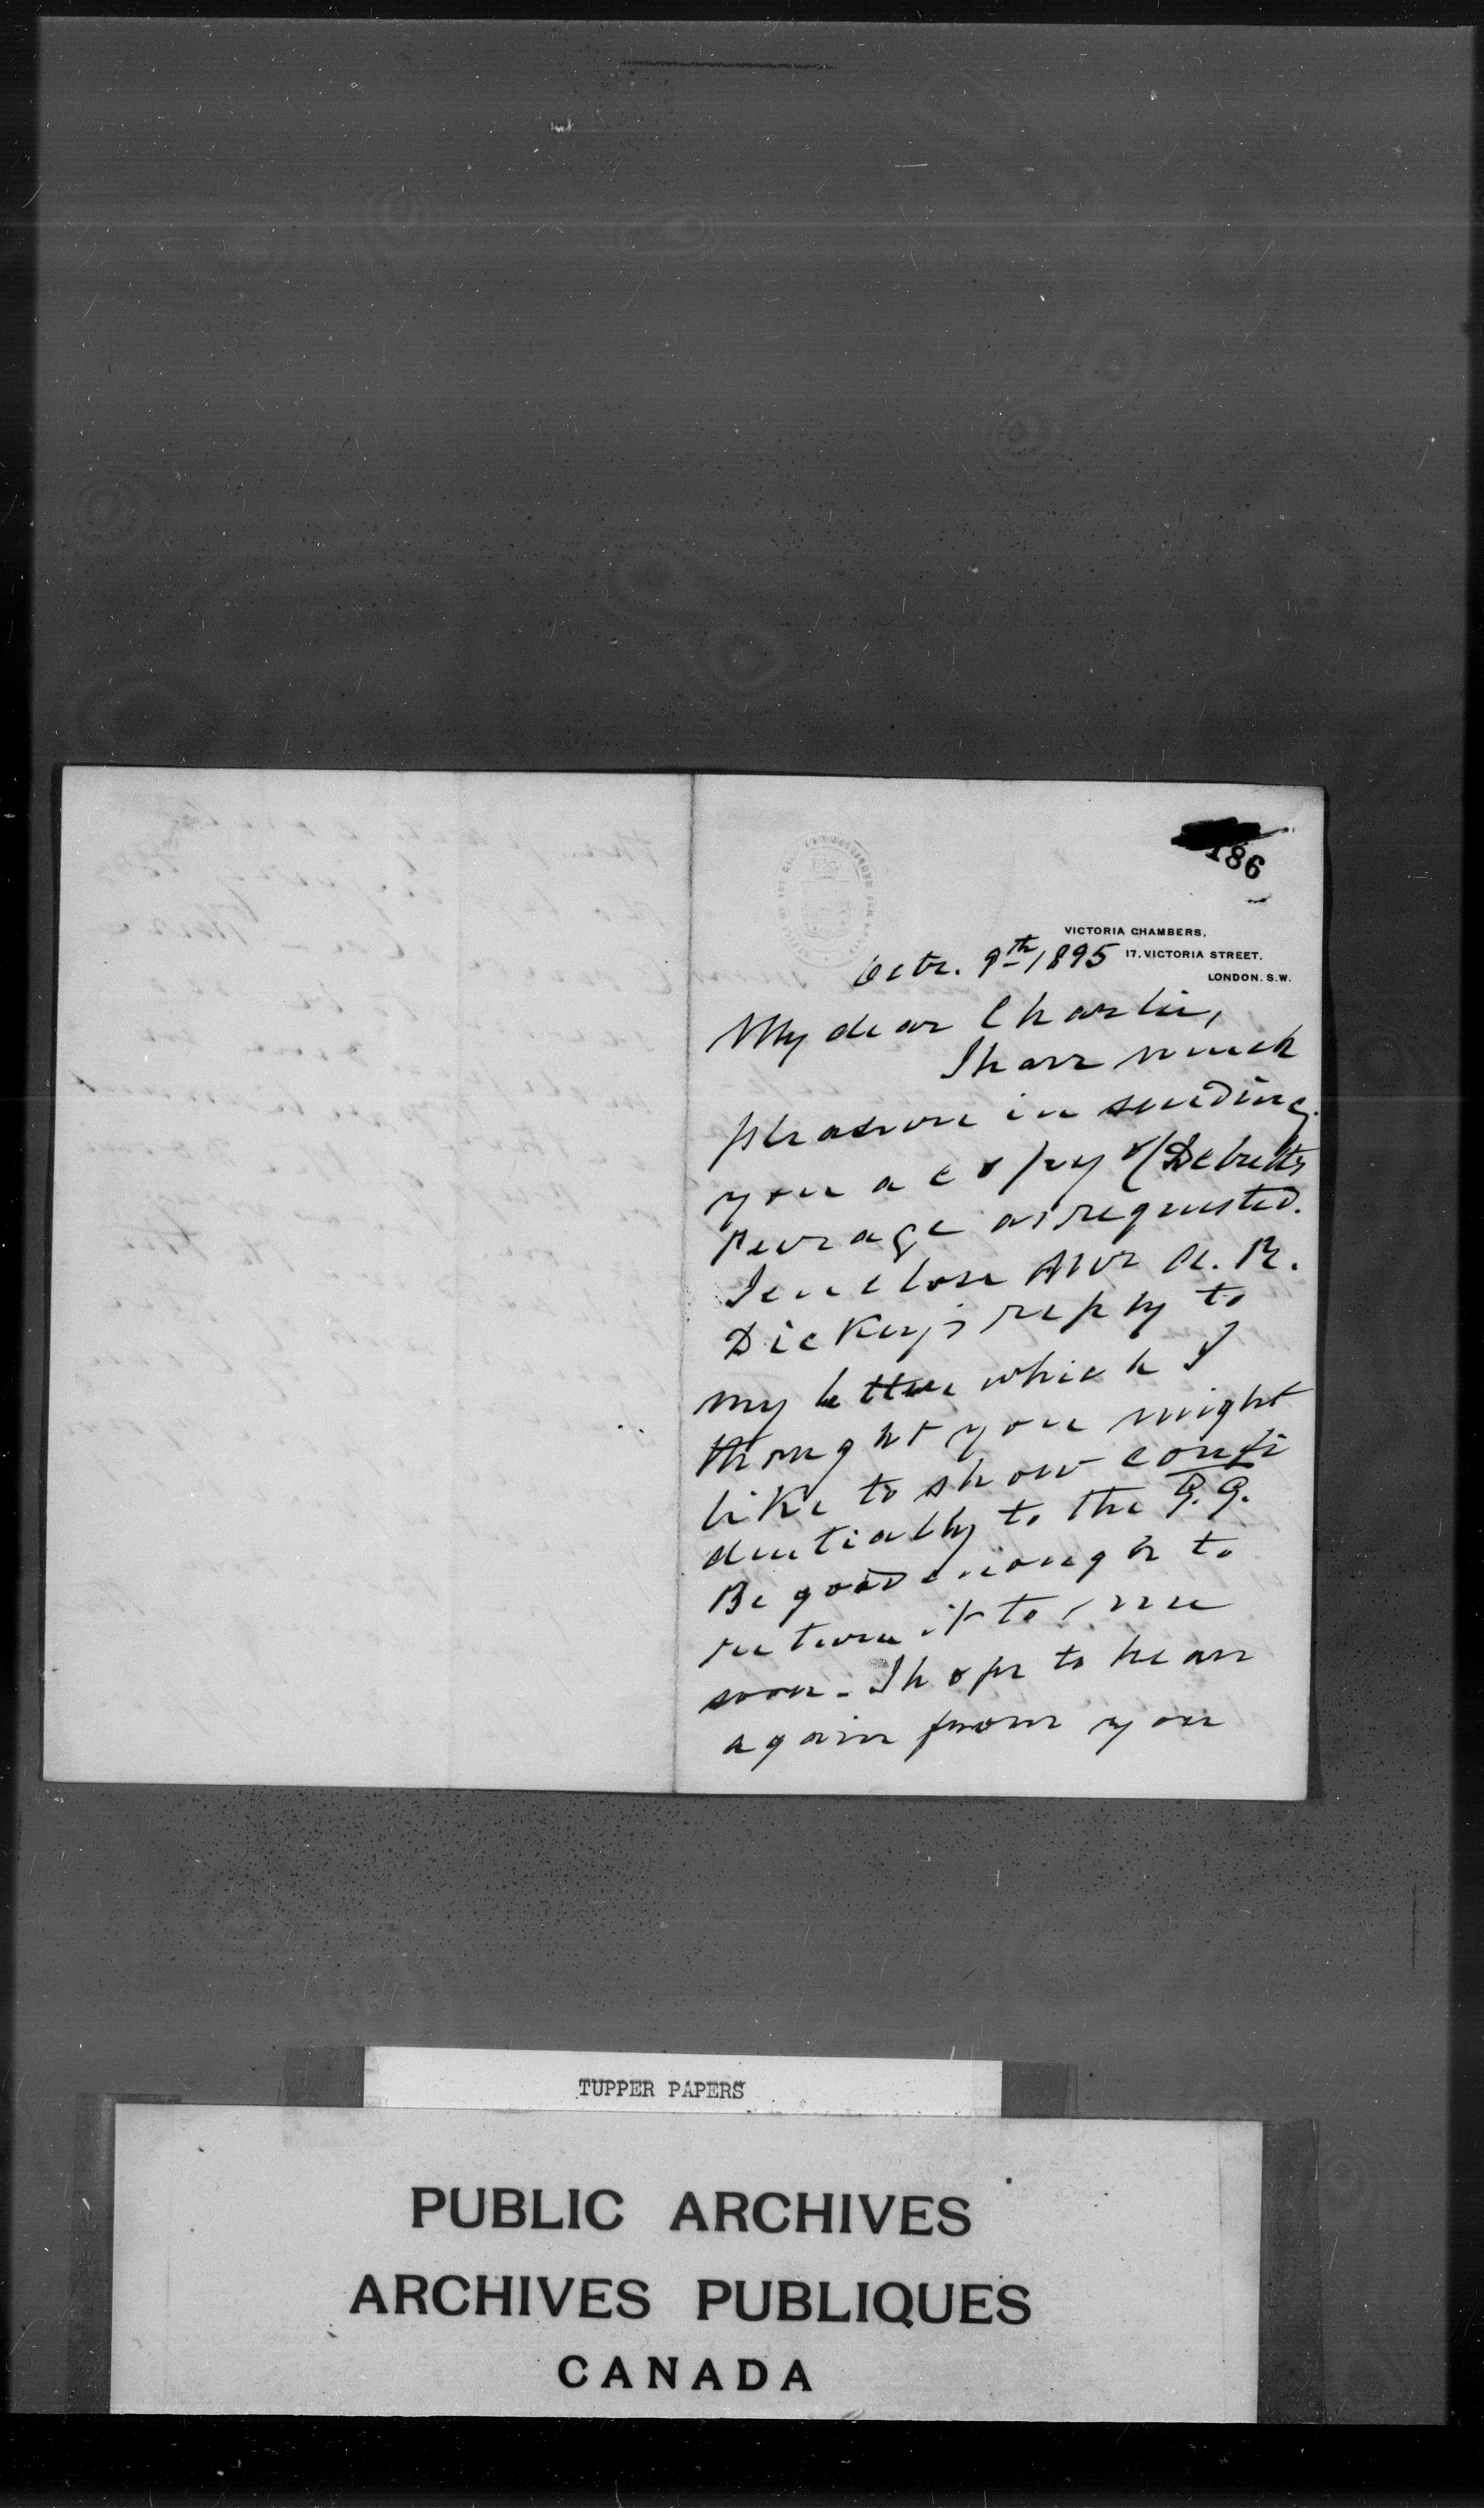 186
VICTORIA CHAMBERS,
17, VICTORIA STREET,
LONDON. S.W.
Octr. 9th 1895
My dear Charlie,
I have much
pleasure in sending
you a copy of Debretts
Peerage as requested.
I enclose Mr A. R.
Dickey's reply to
my letter which I
thought you might
like to show confi
dentially to the G.G.
Be good enough to
return it to me
soon. I hope to hear
again from you
TUPPER PAPERS
PUBLIC ARCHIVES
ARCHIVES PUBLIQUES
CANADA